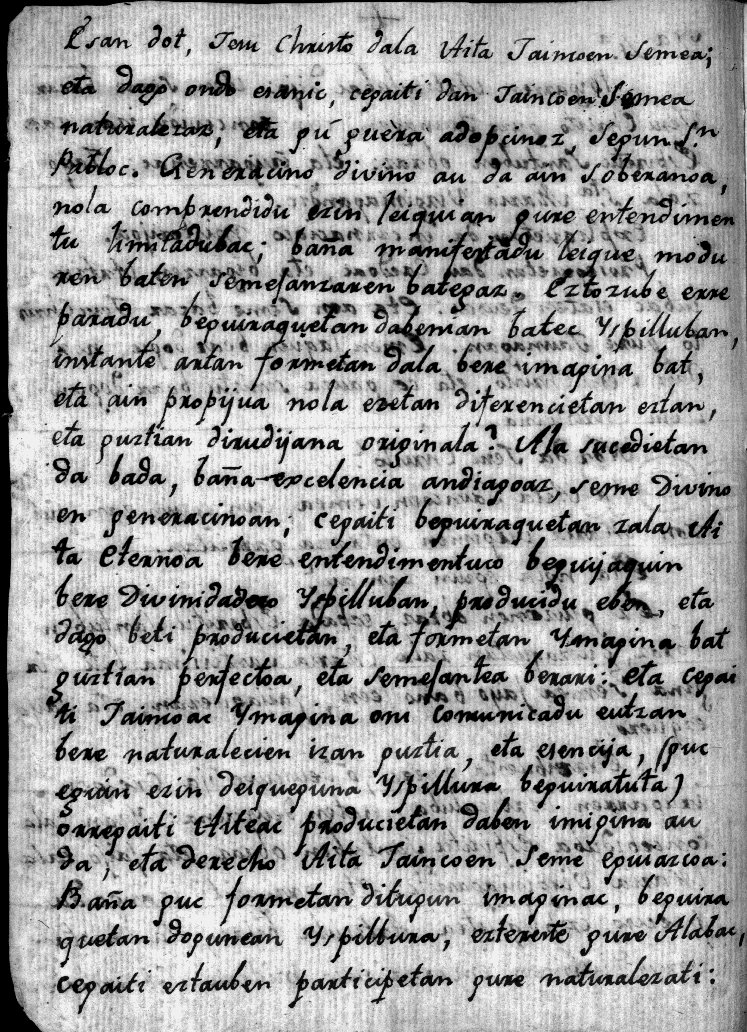 Esan dot, Jesu Christo dala Aita Jaincoen Semea;
eta dago ondo esanic, cegaiti dan Jaincoen Semea
naturalezaz, eta gu guera adopcinoz, Segun Sn
Pabloc. Generacino divino au da ain soberanoa,
nola comprendidu ezin leiquian gure entendimen
tu limitadubac; baña manifestadu leique modu
ren baten semejanzaren bategaz. Eztozube erre
paradu, beguiraquetan dabenian batec Yspilluban,
instante artan formetan dala bere imagina bat,
eta ain propijua nola ezetan diferencietan eztan,
eta guztian dirudijana originala? Ala sucedietan
da bada, baña excelencia andiagoaz, seme Divino
en generacinoan; cegaiti beguiraquetan zala Ai
ta Eternoa bere entendimentuco beguijaquin
bere Divinidadeco Yspilluban, producidu eben, eta
dago beti producietan, eta formetan Ymagina bat
guztian perfectoa, eta semejantea berari: eta cegai
ti Jaincoac Ymagina oni comunicadu eutzan
bere naturalecien izan guztia, eta esencija, (guc
eguin ezin deiqueguna Yspillura beguiratuta)
orregaiti Aiteac producietan daben imigina au
da, eta derecho Aita Jaincoen Seme eguiazcoa:
Baña guc formetan ditugun imaginac, beguira
quetan dogunean Yspillura, eztereste gure Alabac,
cegaiti eztauben participetan gure naturalezati: